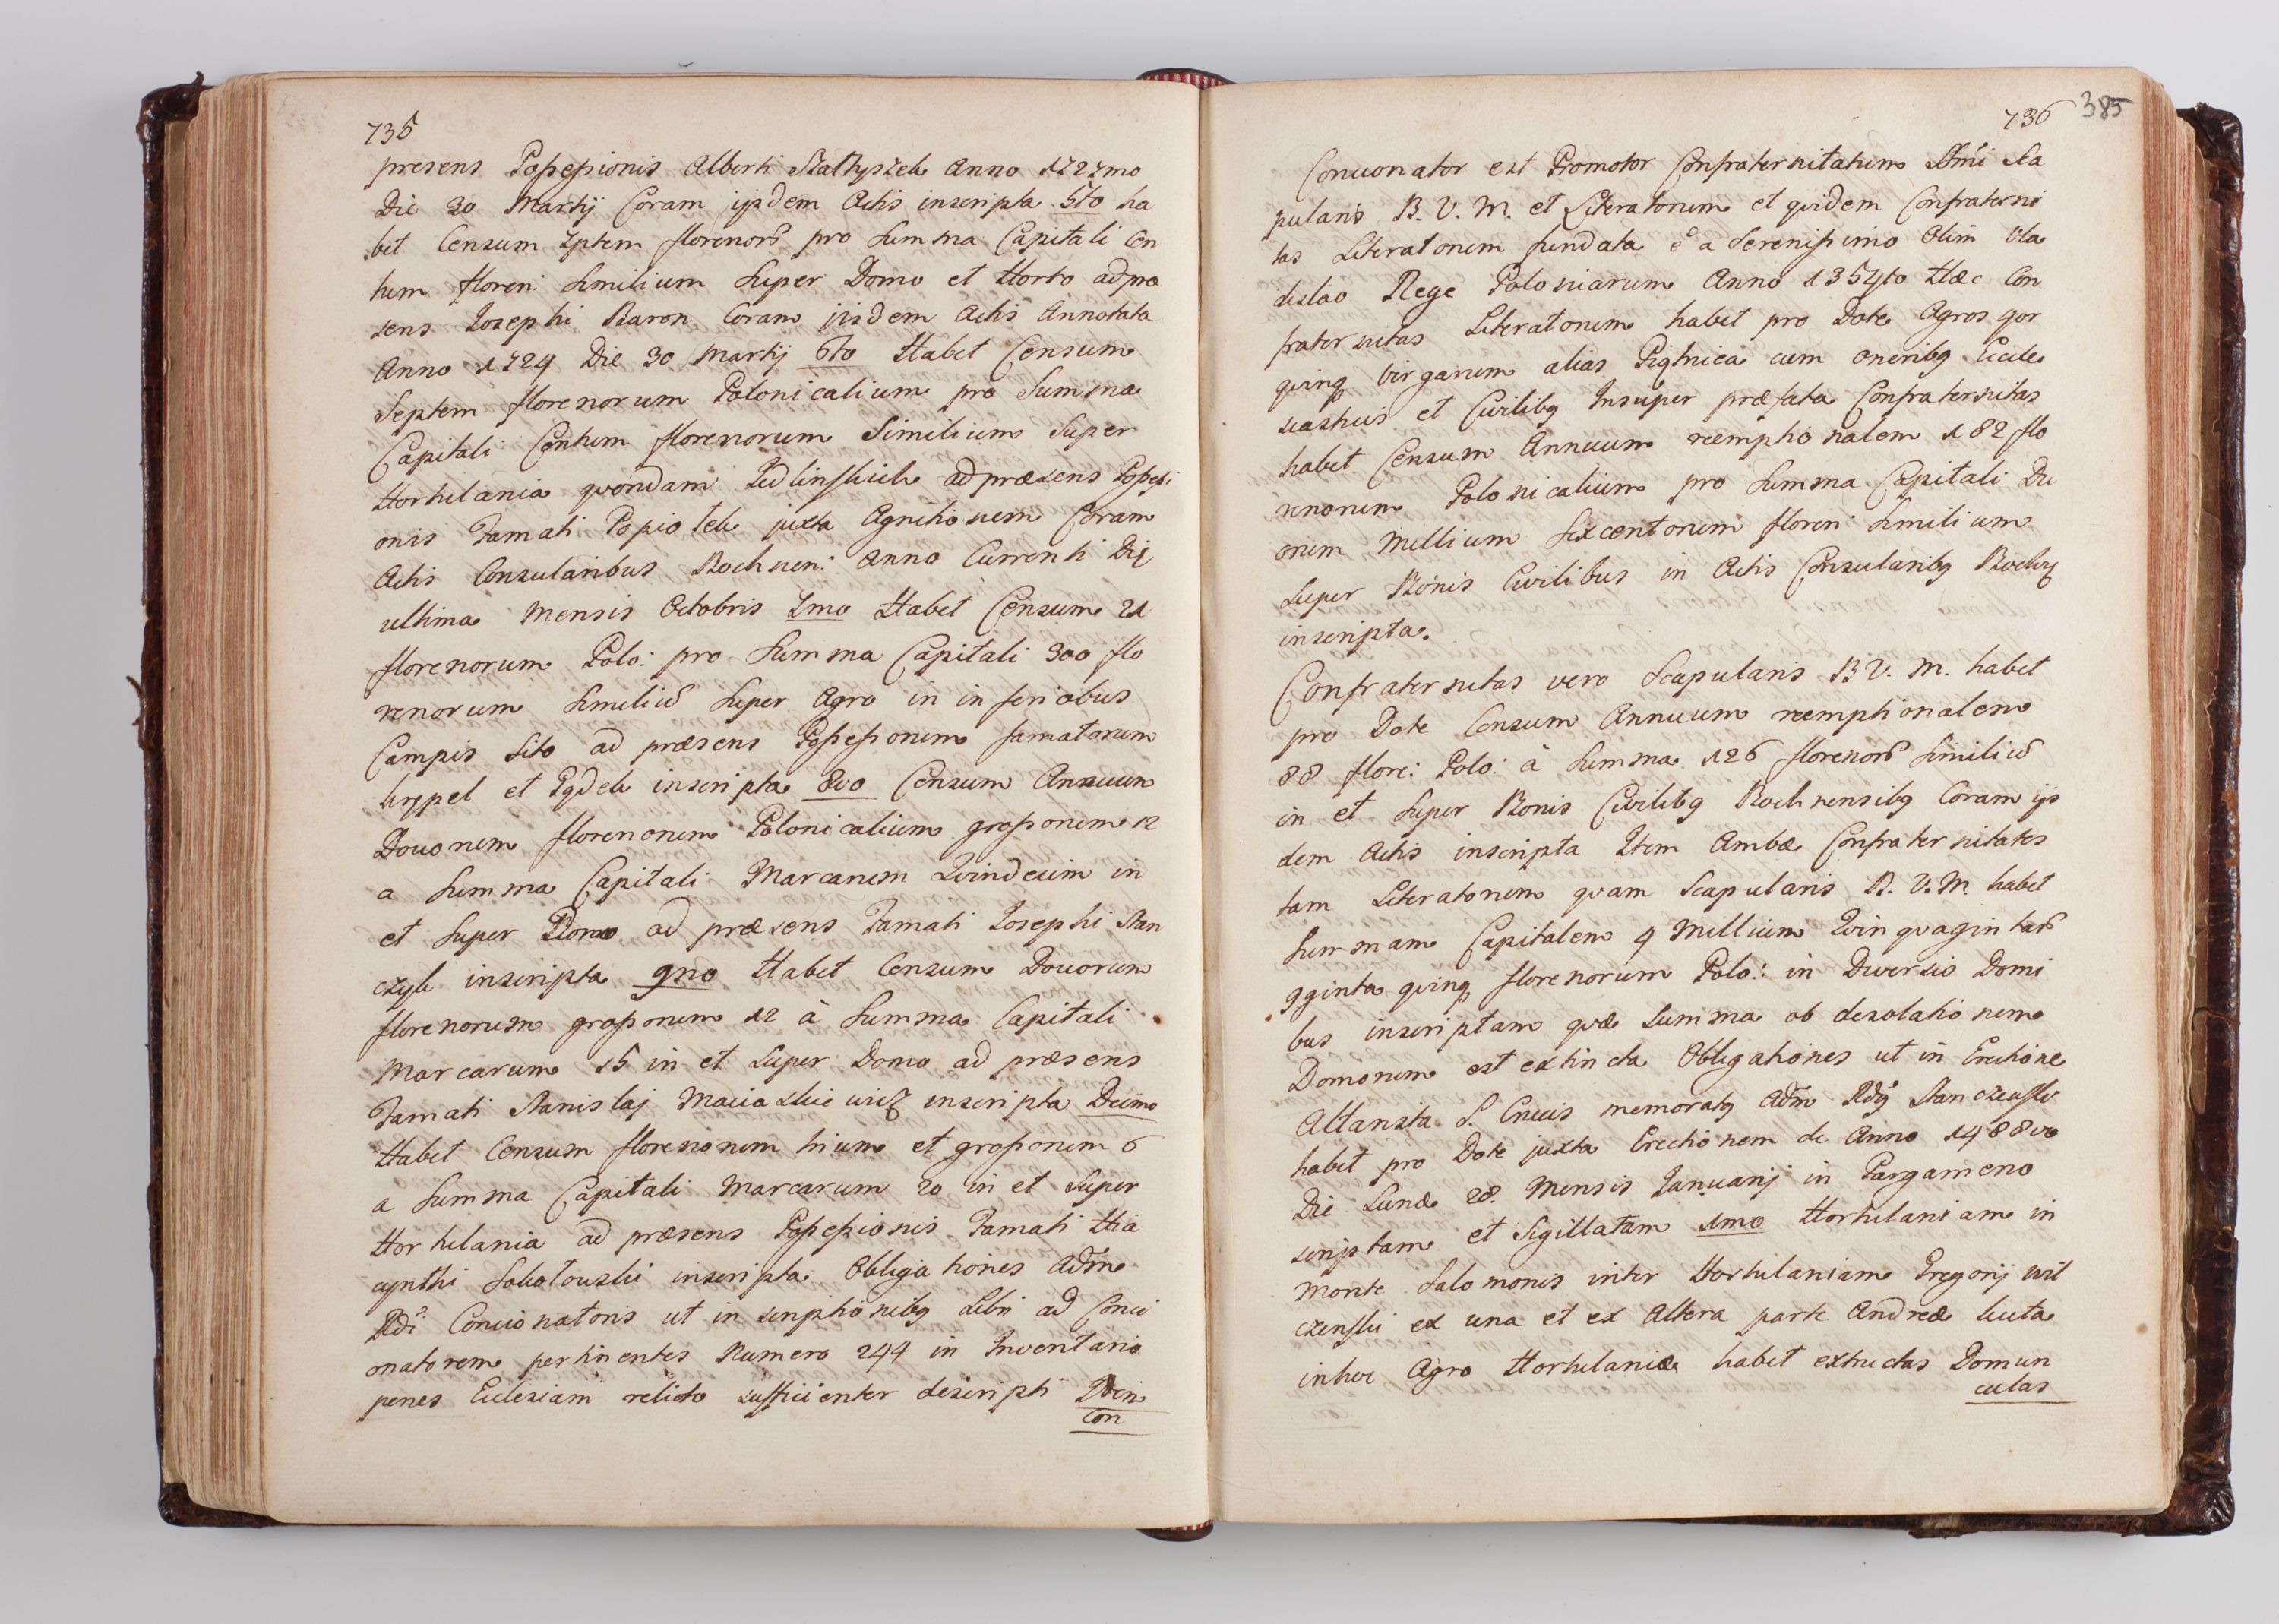 735
presens Possessionis Alberti Stattyszek Anno 1727mo
Die 30 Martij Coram ijsdem Actis inscripta 5to ha
bet Censum 7ptem florenorũ pro Summa Capitali Cen
tum floren: Similium Super Domo et Horto ad præ
sens Iosephi Baron Coram iisdem Actis Annotata
Anno 1724 Die 30 Martij 6to Habet Censum
Septem florenorum Polonicalium pro Summa
Capitali Centum florenorum Similium Super
Hortulania quondam ad præsens Possessi
onis Famati Popiotek juxta Agnitionem Coram
Actis Consularibus Bochnen: Anno Currenti Die
ultima Mensis Octobris 7mo Habet Censum 21
florenorum Polo: pro Summa Capitali 300 flo
renorum Similiũ Super Agro in inferiobus
Campis Sito ad præsens Possessorum famatorum
et inscripta 8vo Censum Annuum
Duorum florenorum Polonicalium grossorum 12
a Summa Capitali Marcarum Quindecim in
et Super Domo ad præsens Famati Iosephi Stan
czyk inscripta 9no Habet Censum Duorum
florenorum grossorum 12 à Summa Capitali
Marcarum 15 in et Super Domo ad præsens
Famati Stanislaj Maciaszkiewicz inscripta Decimo
Habet Censum florenorum trium et grossorum 6
a Summa Capitali Marcarum 20 in et Super
Hortulania ad præsens Possessionis Famati Hia
cynthi inscripta Obligationes Adm̃
Rdi Concionatoris ut in scriptionibq Libri ad Conci
onatorem pertinentes Numero 244 in Inventario
penes Eclesiam relicto sufficienter descripti
Con
736 385
Concionator est Promotor Confraternitatum Ss̃mi Sca
pularis B. V. M. et Literatorum et quidem Confraterni
tas Literatorum fundata ẽ a Serenissimo Olim Vla
dislao Rege Poloniarum Anno 1354to Hæc Con
fraternitas Literatorum habet pro Dote Agros qor
quinq Virgarum alias cum oneribq Eccle
siasticis et Civilibq Insuper præfata Confraternitas
habet Censum Annuum reemptionalem 182 flo
renorum Polonicalium pro Summa Capitali Du
orum Millium Sexcentorum floren: Similium
Super Bonis Civilibus in Actis Consularibq Bochn
inscripta.
Confraternitas vero Scapularis B V. M. habet
pro Dote Censum Annuum reemptionalem
88 flore: Polo: à Summa 126 florenorũ Similiũ
in et Super Bonis Civilibq Bochnensibq Coram ijs
dem Actis inscripta Item Ambæ Confraternitates
tam Literatorum quam Scapularis B. V. M. habet
Summam Capitalem 4 Millium Quinquagintarũ
qginta quinq florenorum Polo: in Diversis Domi
bus inscriptam quæ Summa ob desolationem
Domorum est extincta Obligationes ut in Erectione
Altarista S. Crucis memoratq Adm̃ Rdq
habet pro Dote juxta Erectionem de Anno 1488vo
Die Lunæ 28. Mensis Januarij in Pargameno
scriptam et Sigillatam 1mo Hortulaniam in
Monte Salomonis inter Hortulaniam Gregorij Wil
czenski ex una et ex Altera parte Andreæ Kuta
in hoc Agro Hortulaniæ habet extructas Domun
culas